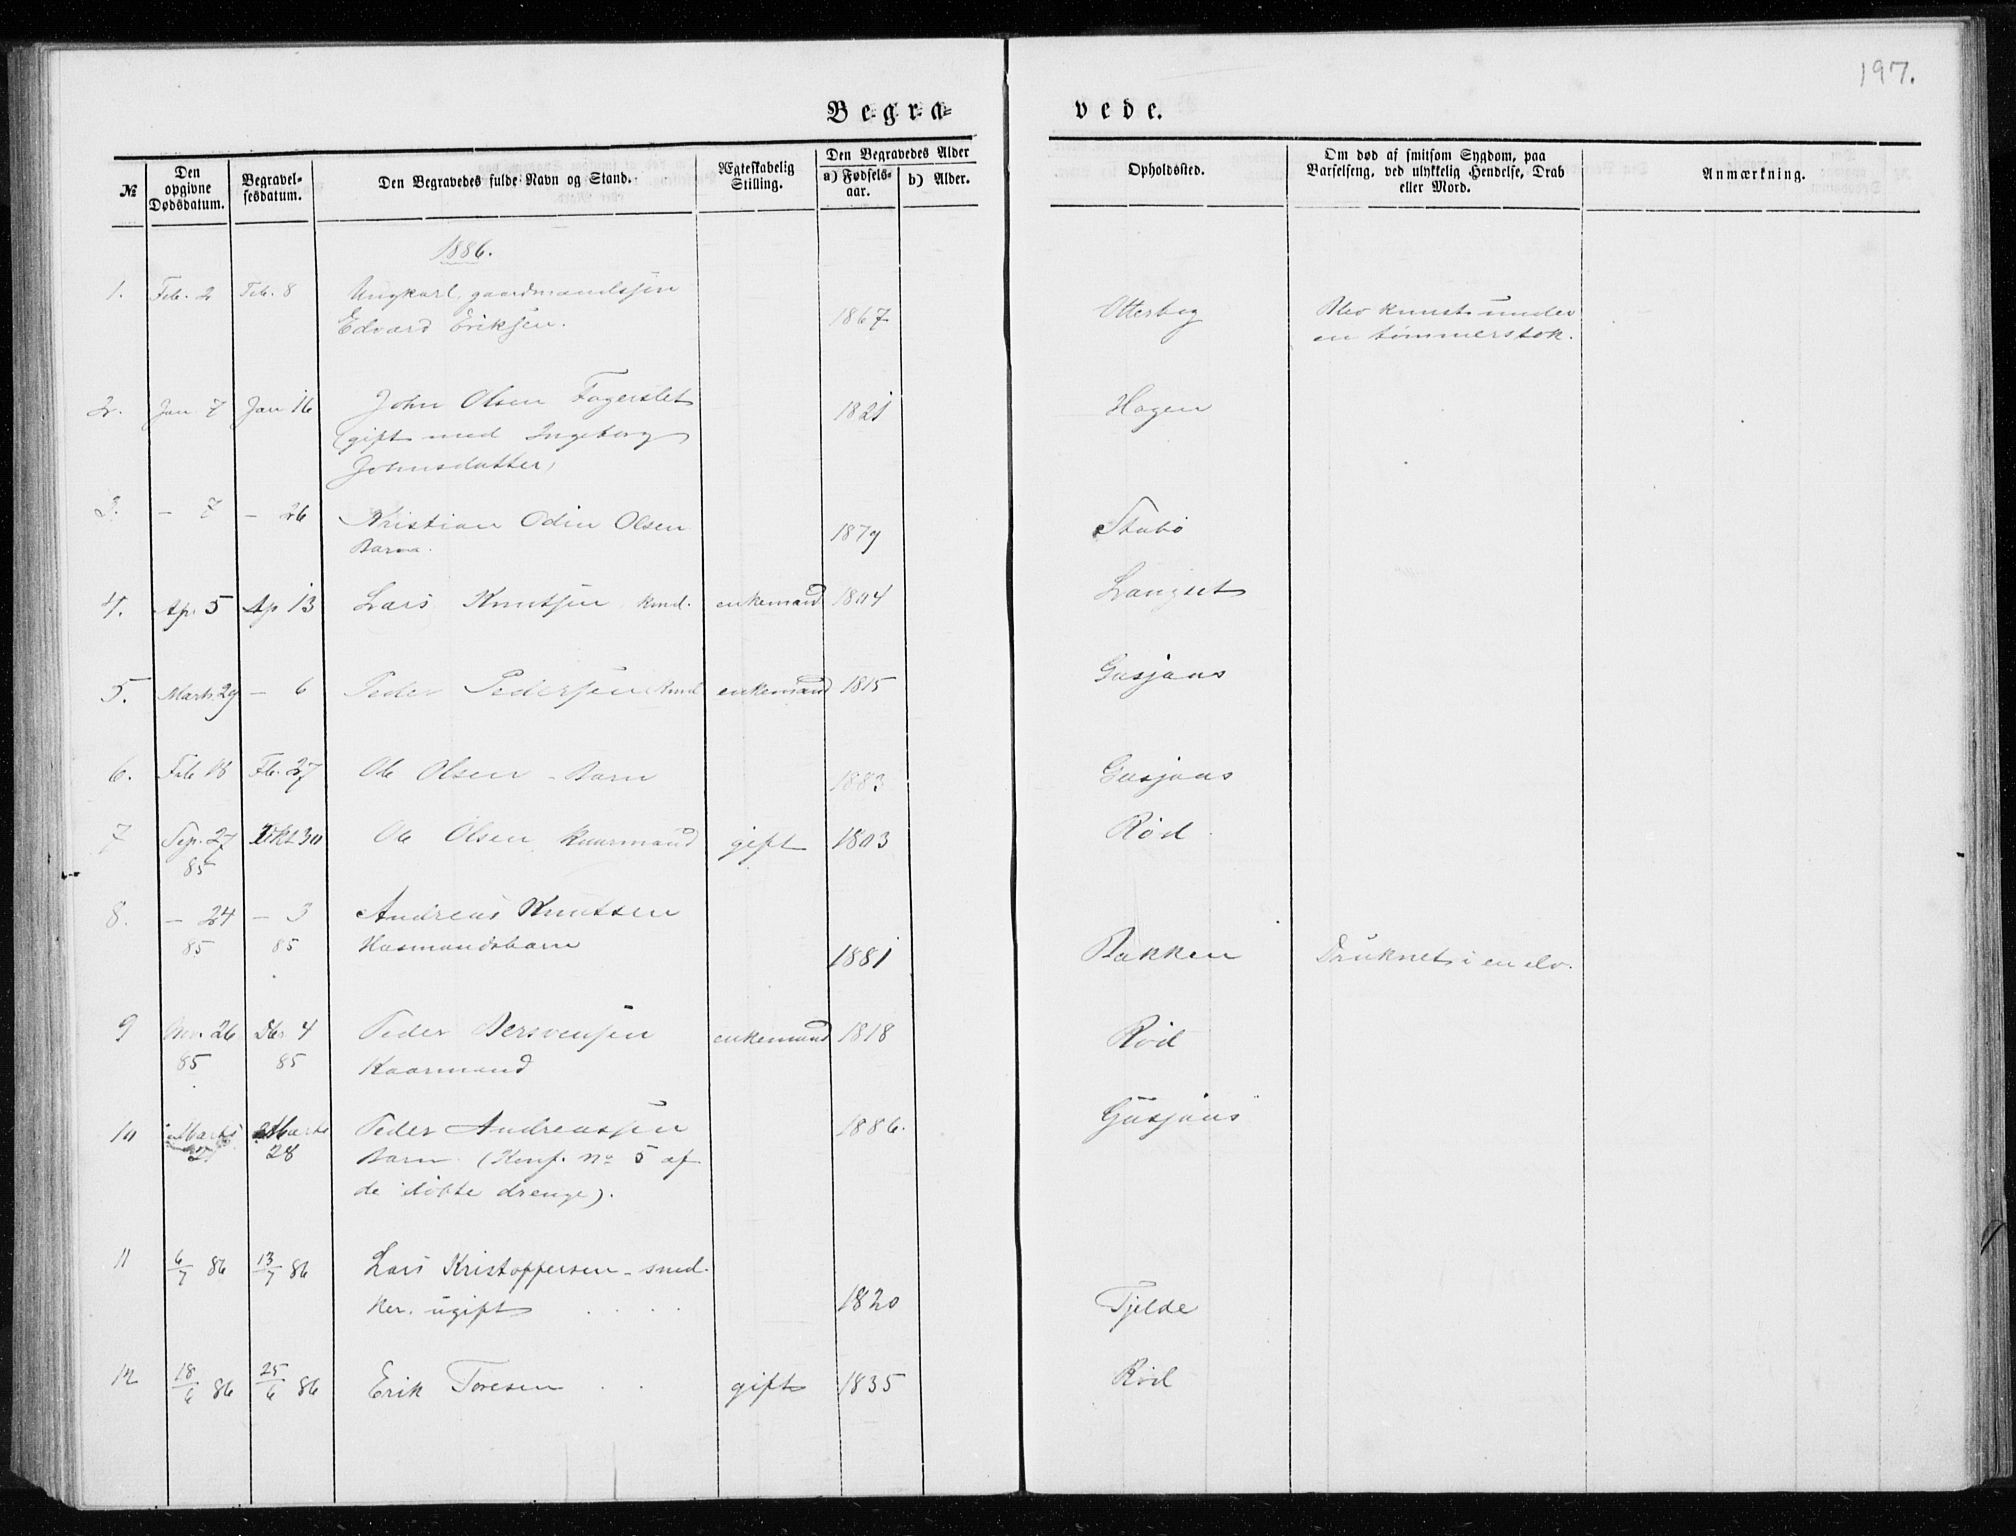 197.
Begra= vede.
№
Den opgivne Dødsdatum.
Begravel-sesdatum.
Den Begravedes fulde Navn og Stand.
Ægteskabelig Stilling.
Den Begravedes Alder
a) Fødsels-aar.
b) Alder.
Opholdssted.
Om død af smitsom Sygdom, paa Barselseng, ved ulykkelig Hendelse, Drab eller Mord.
Anmærkning.
1886.
1. Feb. 2 Feb. 8 Ungkarl, gaardmandssøn
Edvard Eriksen. 1867 Otterbeg Blev knust under
en tømmerstok.
2. Jan 7 Jan 16 John Olsen Fagerslet 1821 Hagen
(gift med Ingeborg
Johnsdatter)
3. – 7 – 26 Kristian Odin Olsen
Barn. 1879 Stubø
4. Ap. 5 Ap 13 Lars Knutsen kmd. enkemand 1804 Langset
5. Marts 29 – 6 Peder Pedersen kmd enkemand 1815 Gusjaas
6. Feb 18 Fb. 27 Ole Olsen – Barn 1883 Gusjaas
7 Sep. 27 Okt 30 Ole Olsen kaarmand gift 1803 Rød
85
8. – 24 – 3 Andreas Knutsen
85 85 Husmandsbarn 1881 Bakken Druknet i en elv.
9 Nov. 26 Dbr 4 Peder Bersvensen enkemand 1818 Rød
85 85 Kaarmand
10 Marts Marts Peder Andreassen 1886. Gusjaas
21 28 Barn. (Konf. № 5 af
de døbte drenge).
11 6/7 86 13/7 86 Lars Kristoffersen – sned-
ker. ugift 1820 Tjelde
12 18/6 86 25/6 86 Erik Toresen gift 1835 Rød